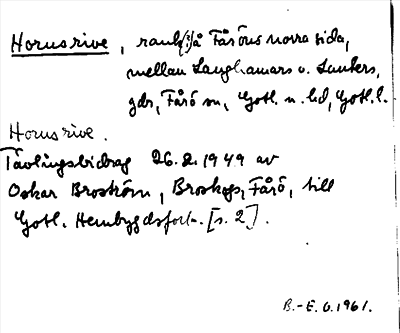 Horusrive, rauk(?) å Fåröns norra sida,
mellan Langhamars o. Lauters,
gdr, Fårö sn, Gotl. n. hd, Gotl. l.
Horusrive.
Tävlingsbidrag 26.2.1949 av
Oskar Broström, Broskogs, Fårö, till
Gotl. Hembygdsförb. [s. 2].
B.-E. O. 1961.